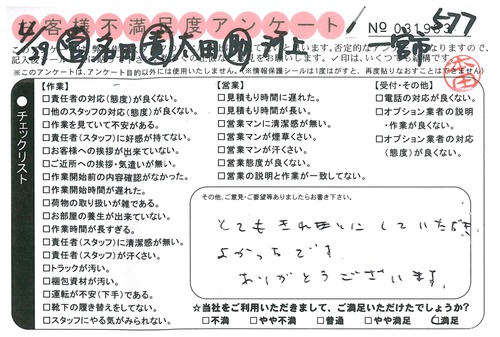 お客様不満足度アンケート
No 031983
577
4/29
※このアンケートは、アンケート目的以外には使用いたしません。(※情報保護シールは1度はがすと、再度貼りなおすことはできません)
チェックリスト
【作業】
□責任者の対応(態度)が良くない。
□他のスタッフの対応(態度)が良くない。
□作業を見ていて不安がある。
□責任者(スタッフ)に好感が持てない。
□お客様への挨拶が出来ていない。
□ご近所への挨拶・気遣いが無い。
□作業開始前の内容確認がなかった。
□作業開始時間が遅れた。
□荷物の取り扱いが雑である。
□お部屋の養生が出来ていない。
□作業時間が長すぎる。
□責任者(スタッフ)に清潔感が無い。
□責任者(スタッフ)が汗くさい。
□トラックが汚い。
□梱包資材が汚い。
□運転が不安(下手)である。
□靴下の履き替えをしてない。
□スタッフにやる気がみられない。
【営業】
□見積もり時間に遅れた。
□見積もり時間が長い。
□営業マンに清潔感が無い。
□営業マンが煙草くさい。
□営業マンが汗くさい。
□営業態度が良くない。
□営業の説明と作業が一致してない。
【受付・その他】
□電話の対応が良くない。
□オプション業者の説明
・作業が良くない。
□オプション業者の対応
(態度)が良くない。
その他、ご意見・ご要望等ありましたらお書き下さい。
とてもきれいにしていただき
よかったです。
ありがとうございます。
☆当社をご利用いただきまして、ご満足いただけたでしょうか?
□不満 □やや不満 □普通 □やや満足 □満足